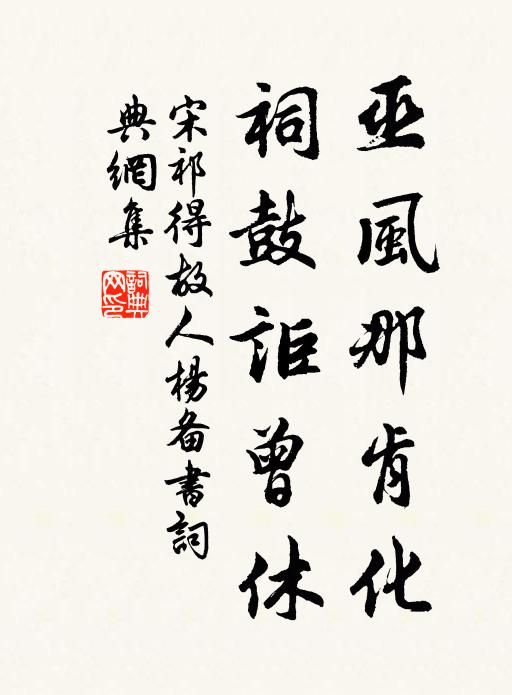 巫風那肯化
祠鼓詎曾休
宋祁得故人楊备書詞
典網集
詞典網印